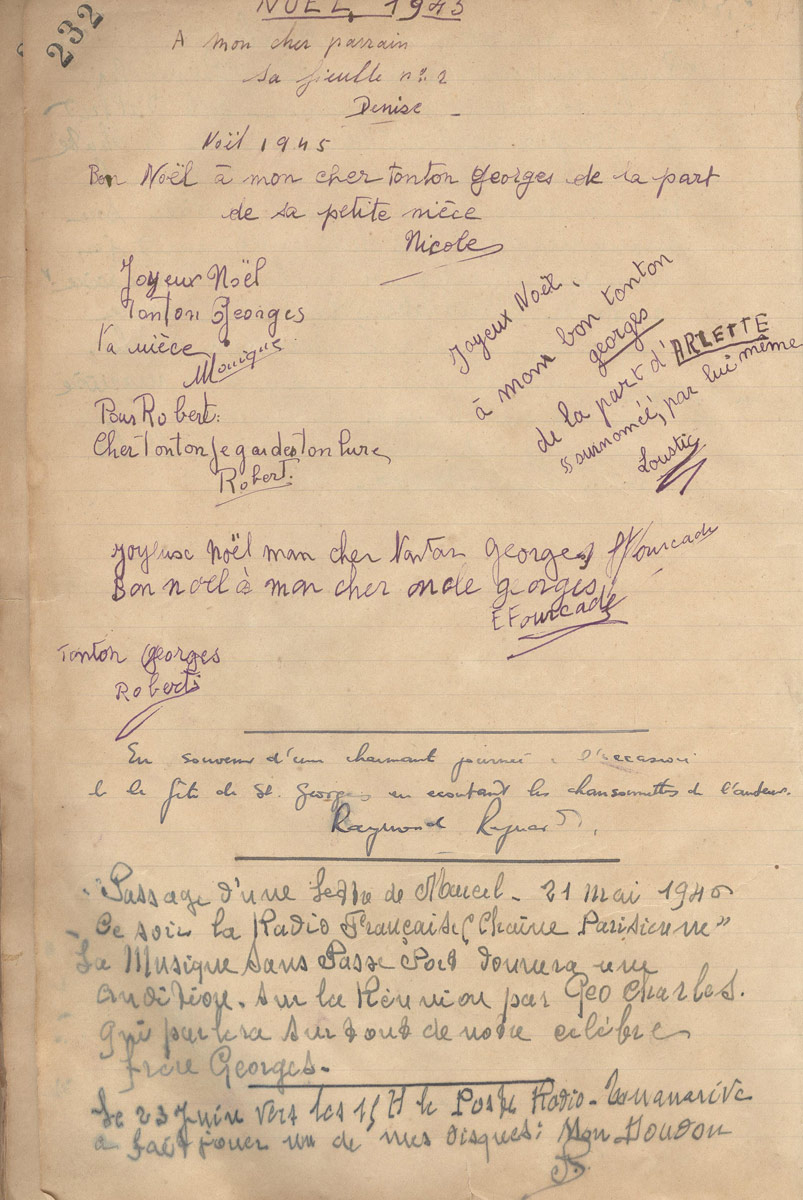 232
NOËL, 1945
A mon cher parrain
Sa fieulle n° 2
Denise
Noël 1945
Bon Noël à mon cher tonton Georges de la part
de sa petite nièce
Nicole
Joyeux Noël
Tonton Georges
Ta nièce
Monique
Joyeux Noël.
à mon bon tonton
georges
de la part d'ARLETTE
surnomée, par lui même
Loustic
Pour Robert:
Cher Tonton je
Robert.
Joyeuse Noël mon cher Tonton Georges Fourcade
Bon noël à mon cher oncle georges
E Fourcade
Tonton Georges
Robert
En souvenir d'un charmant journée à l'occasion
de la fête de St. Georges en écoutant les chansonnettes de l'auteur.
Raymond
Passage d'une lettre de Marcel - 21 mai 1946
Ce soir la Radio Française (Chaîne Parisienne"
La Musique Sans Passe Port donnera une
audition. sur la Réunion par Geo Charles.
qui parlera surtout de notre célèbre
frère Georges.
Le 23 Juin vers les 15 H le Poste Radio-Tananarive
a fait jouer un de mes disques: Mon Doudou